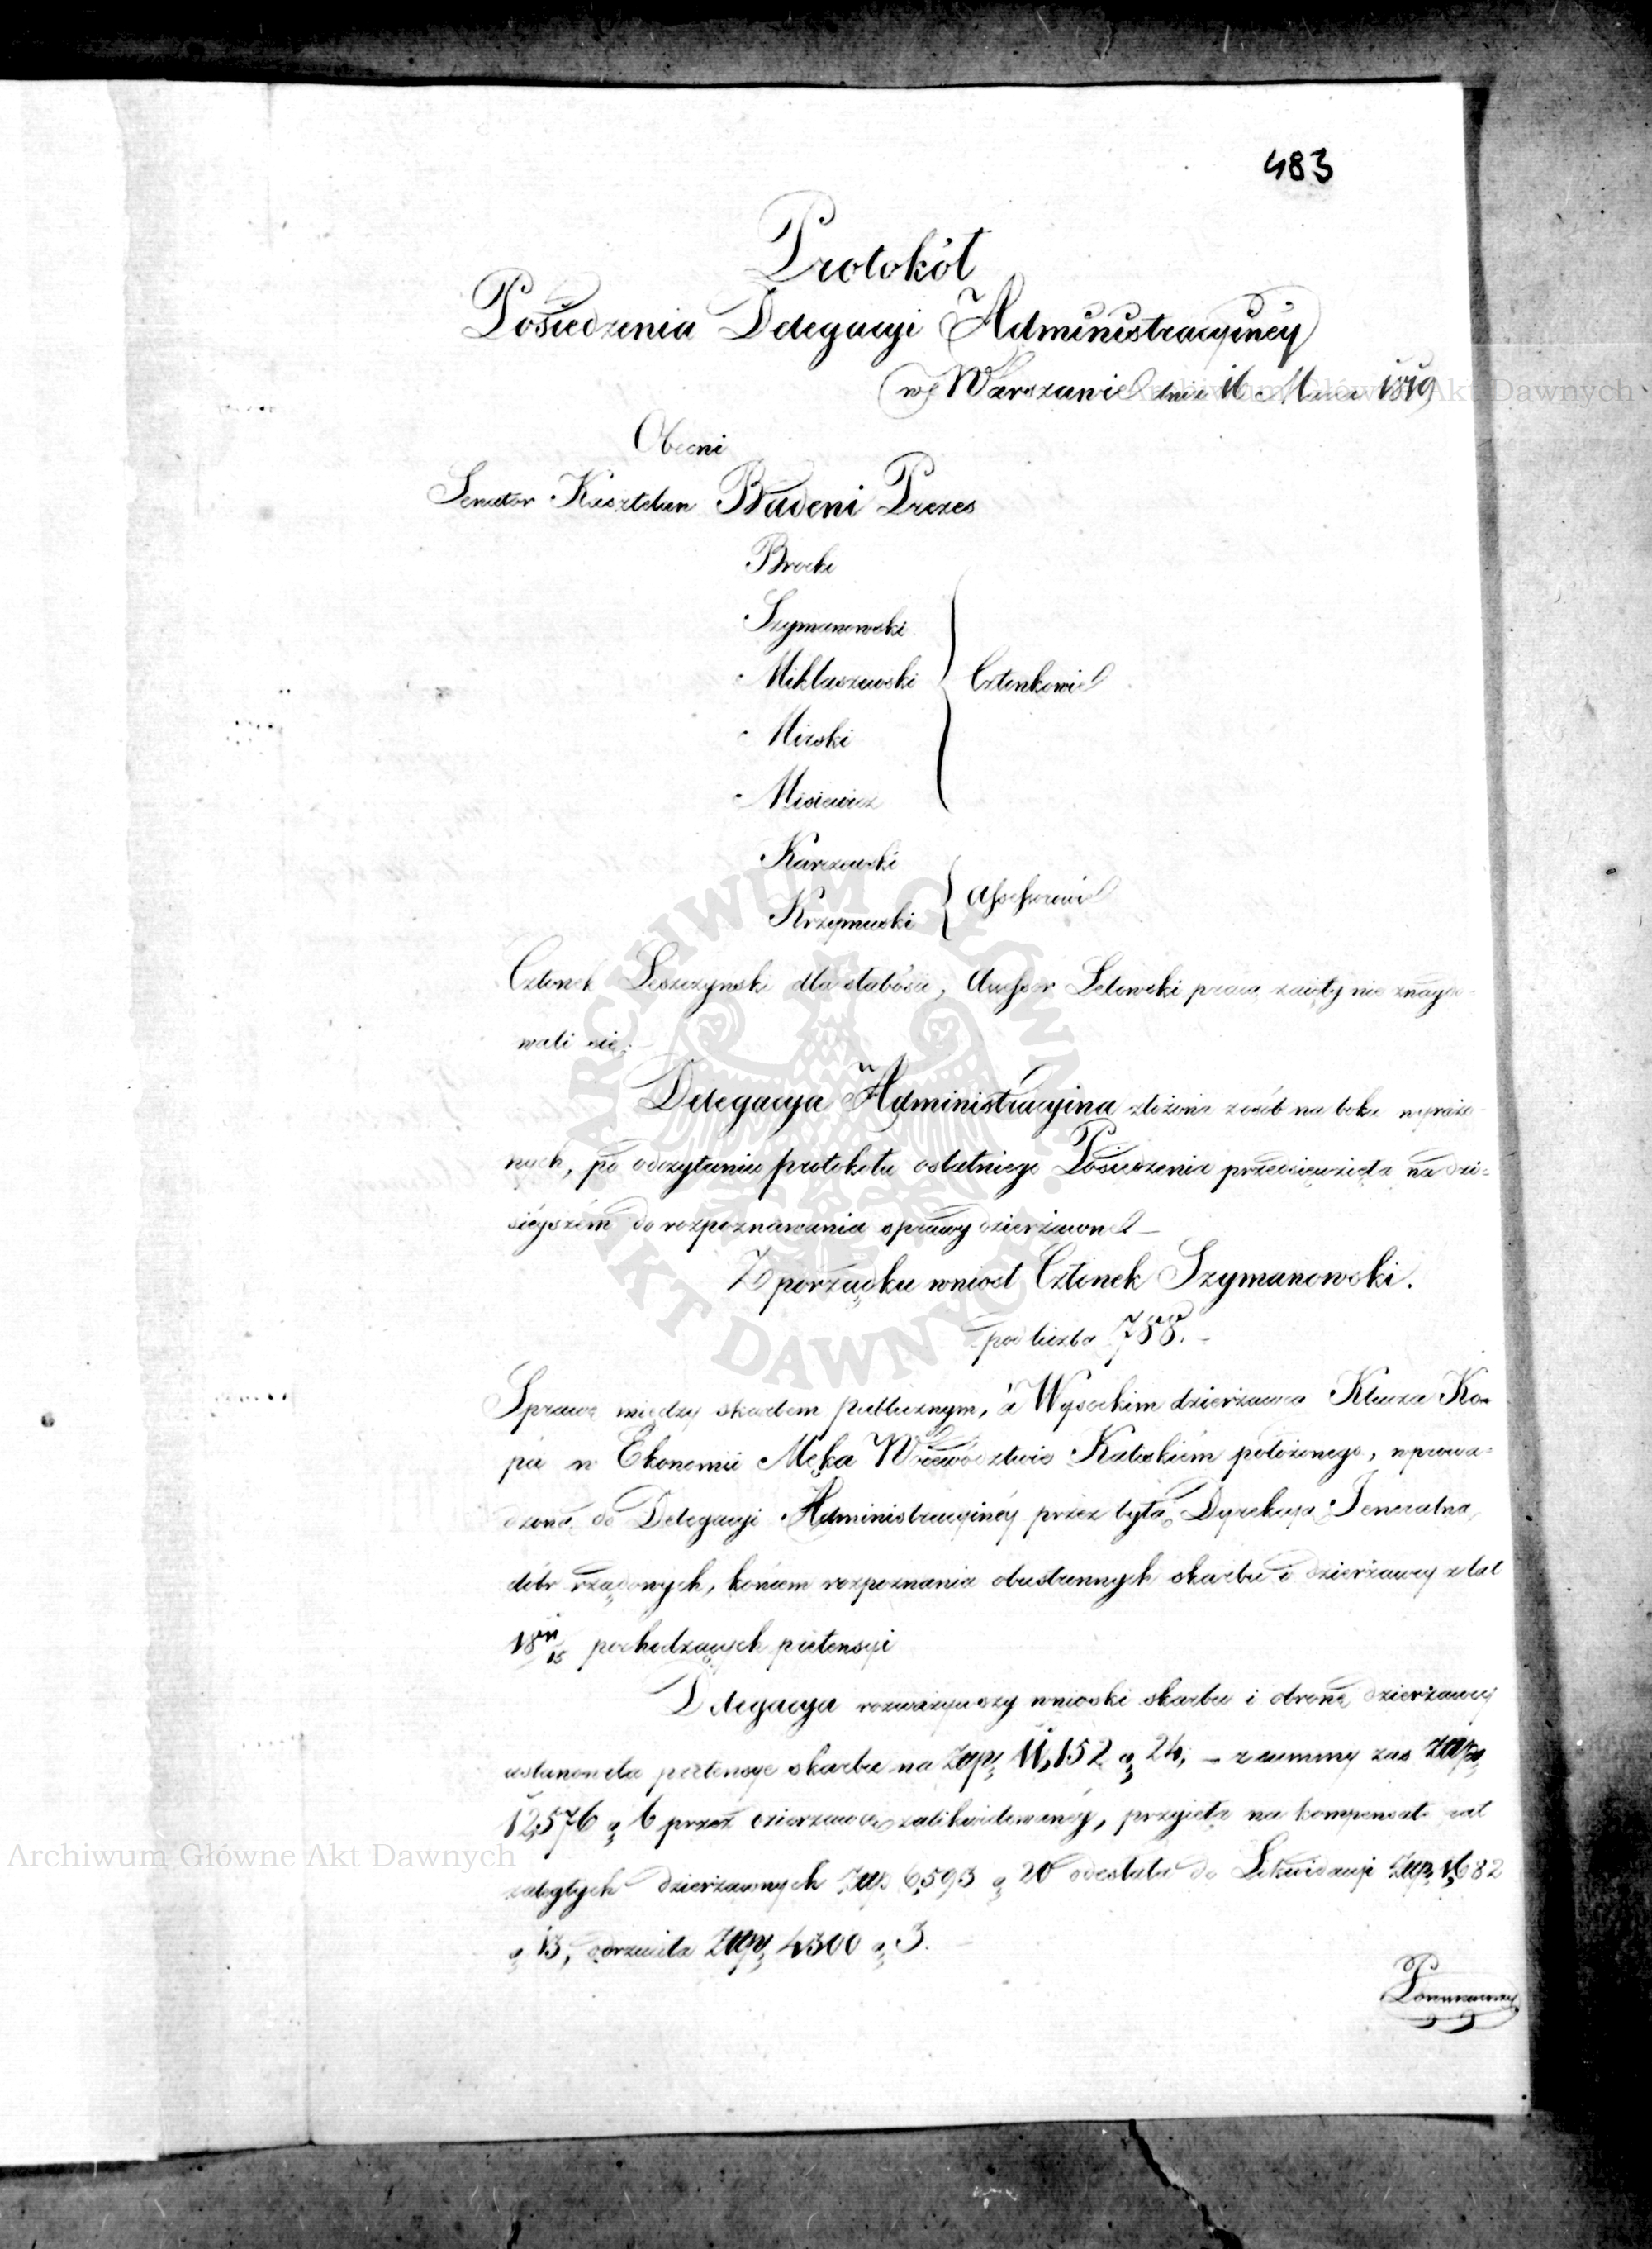 483
Protokół
Posiedzenia Delegacyi Administracyinéy
w Warszawie dnia 16 Marca 1819
Obecni
Senator Kasztelan Badeni Prezes
Brocki
Szymanowski
Miklaszewski
Członkowie
Mirski
Misiewicz
Karczewski
Krzymuski
Assessorowie
Członek Leszczynski dla słabości, Assessor Letowski pracą zaięty nie znaydo-
wali się.
Delegacya Administracyina złożona z osób na boku wyrażo-
nych, po odczytaniu protokołu ostatniego Posiedzenia przedsięwzięła na dzi-
sieyszém do rozpoznawania sprawy dzierżawne
Z porządku wniosł Członek Szymanowski.
pod liczbą 788.
Sprawę między skarbem publicznym, a Wysockim dzierżawcą Klucza Ko-
pa w Ekonomii Męka Woiewództwie Kaliskiém położonego, wprowa-
dzoną do Delegacyi Administracyinéy przez byłą Dyrekcyą Jeneralną
dóbr rządowych, końcem rozpoznania obustronnych skarbu i dzierżawcy z lat
18 /15 pochodzących pretensyi
Delegacya rozważywszy wnioski skarbu i obronę dzierżawcy
ustanowiła pretensye skarbu na Złp. 11,152 g 24, – z summy zaś Złp.
12,576 g 6 przez dzierżawcę zalikwidowanéy, przyięła na kompensatę rat
zaległych dzierżawnych Złp. 6,593 g 20 odesłała do Likwidacyi Złp. 1,682
g 13, odrzuciła Złp. 4300 g 3.
Archiwum Główne Akt Dawnych
Archiwum Główne Akt Dawnych
ARCHIWUM GŁÓWNE AKT DAWNYCH